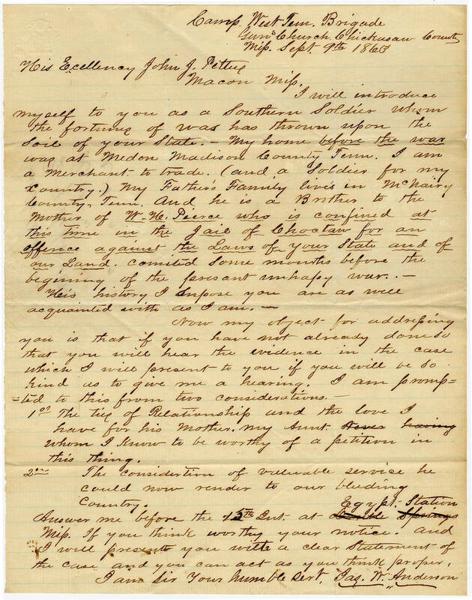 Camp West Tenn. Brigade
Church Chickasaw County
Mip. Sept. 9th 1863
His Excellency John J. Pettus
Macon Mip.
I will introduce
myself to you as a Southern Soldier whom
the fortunes of war has thrown upon the
soil of your State. - My home before the war
was at Medon Madison County Tenn. I am
a Merchant to trade. (and a Soldier for my
country.) My Father's Family lives in McNairy
County, Tenn. And he is a Brother to the
Mother of W. H. Pierce who is confined at
this time in the Jail of Choctaw for an
offence against the Laws of your State and of
our Land. comited some months before the
begining of the present unhapy war. . -
His history I supose you are as well
acquainted with as I am. -
Now my object for addressing
you is that if you have not already done so
that you will hear the evidence in the case
which I will present to you if you will be so
kind as to give me a hearing. I am promp-
=ted to this from two considerations. -
1st The ties of Relationship and the love I
have for his Mother. my Aunt having
whom I know to be worthy of a petition in
this thing.
2nd The consideration of valuable service he
could now render to our bleeding
Country.
Egypt Station
Answer me before the 15th Inst. at Springs
Mip. If you think worthy your notice. and
I will present you with a clear statement of
the case and you can act as you think proper,
I am Sir Your humble Sert. Jas. W. Anderson